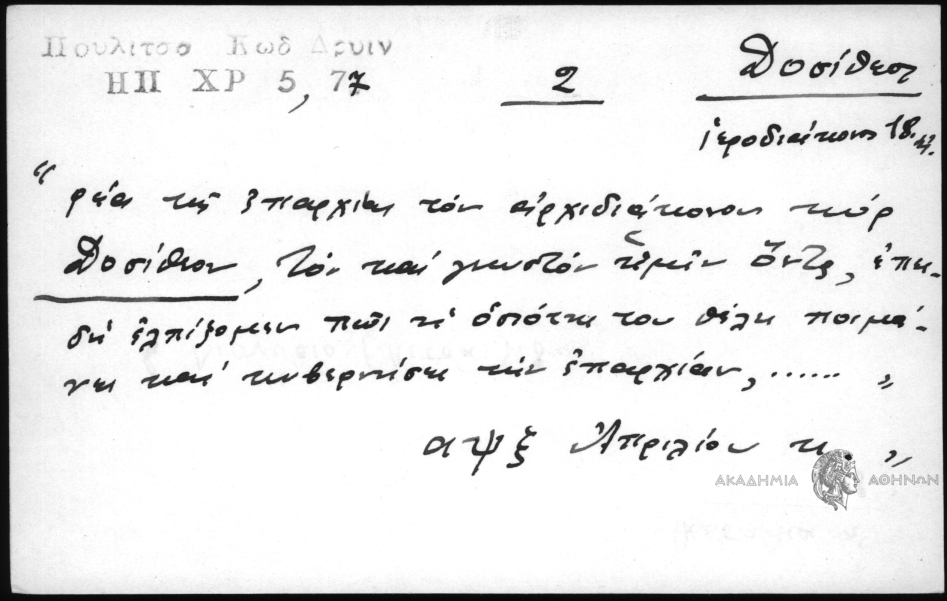 Πουλιτσο Κωδ Δρυιν
ΗΠ ΧΡ 5, 77
2
Δοσίθεος
ἱεροδιάκονος 18.
“ ρέαι τῆς ἐπαρχίας τὸν ἀρχιδιάκονον κύρ
Δοσίθεον, τὸν καὶ γνωστὸν ἡμῖν ὄντα, ἐπει-
δὴ ἐλπίζομεν πῶς ἡ ὁσιότης του θέλη ποιμά-
νει καὶ κυβερνήσει τὴν ἐπαρχίαν, ...... „
αψξ Ἀπριλίου κ „
ΑΚΑΔΗΜΙΑ ΑΘΗΝΩΝ